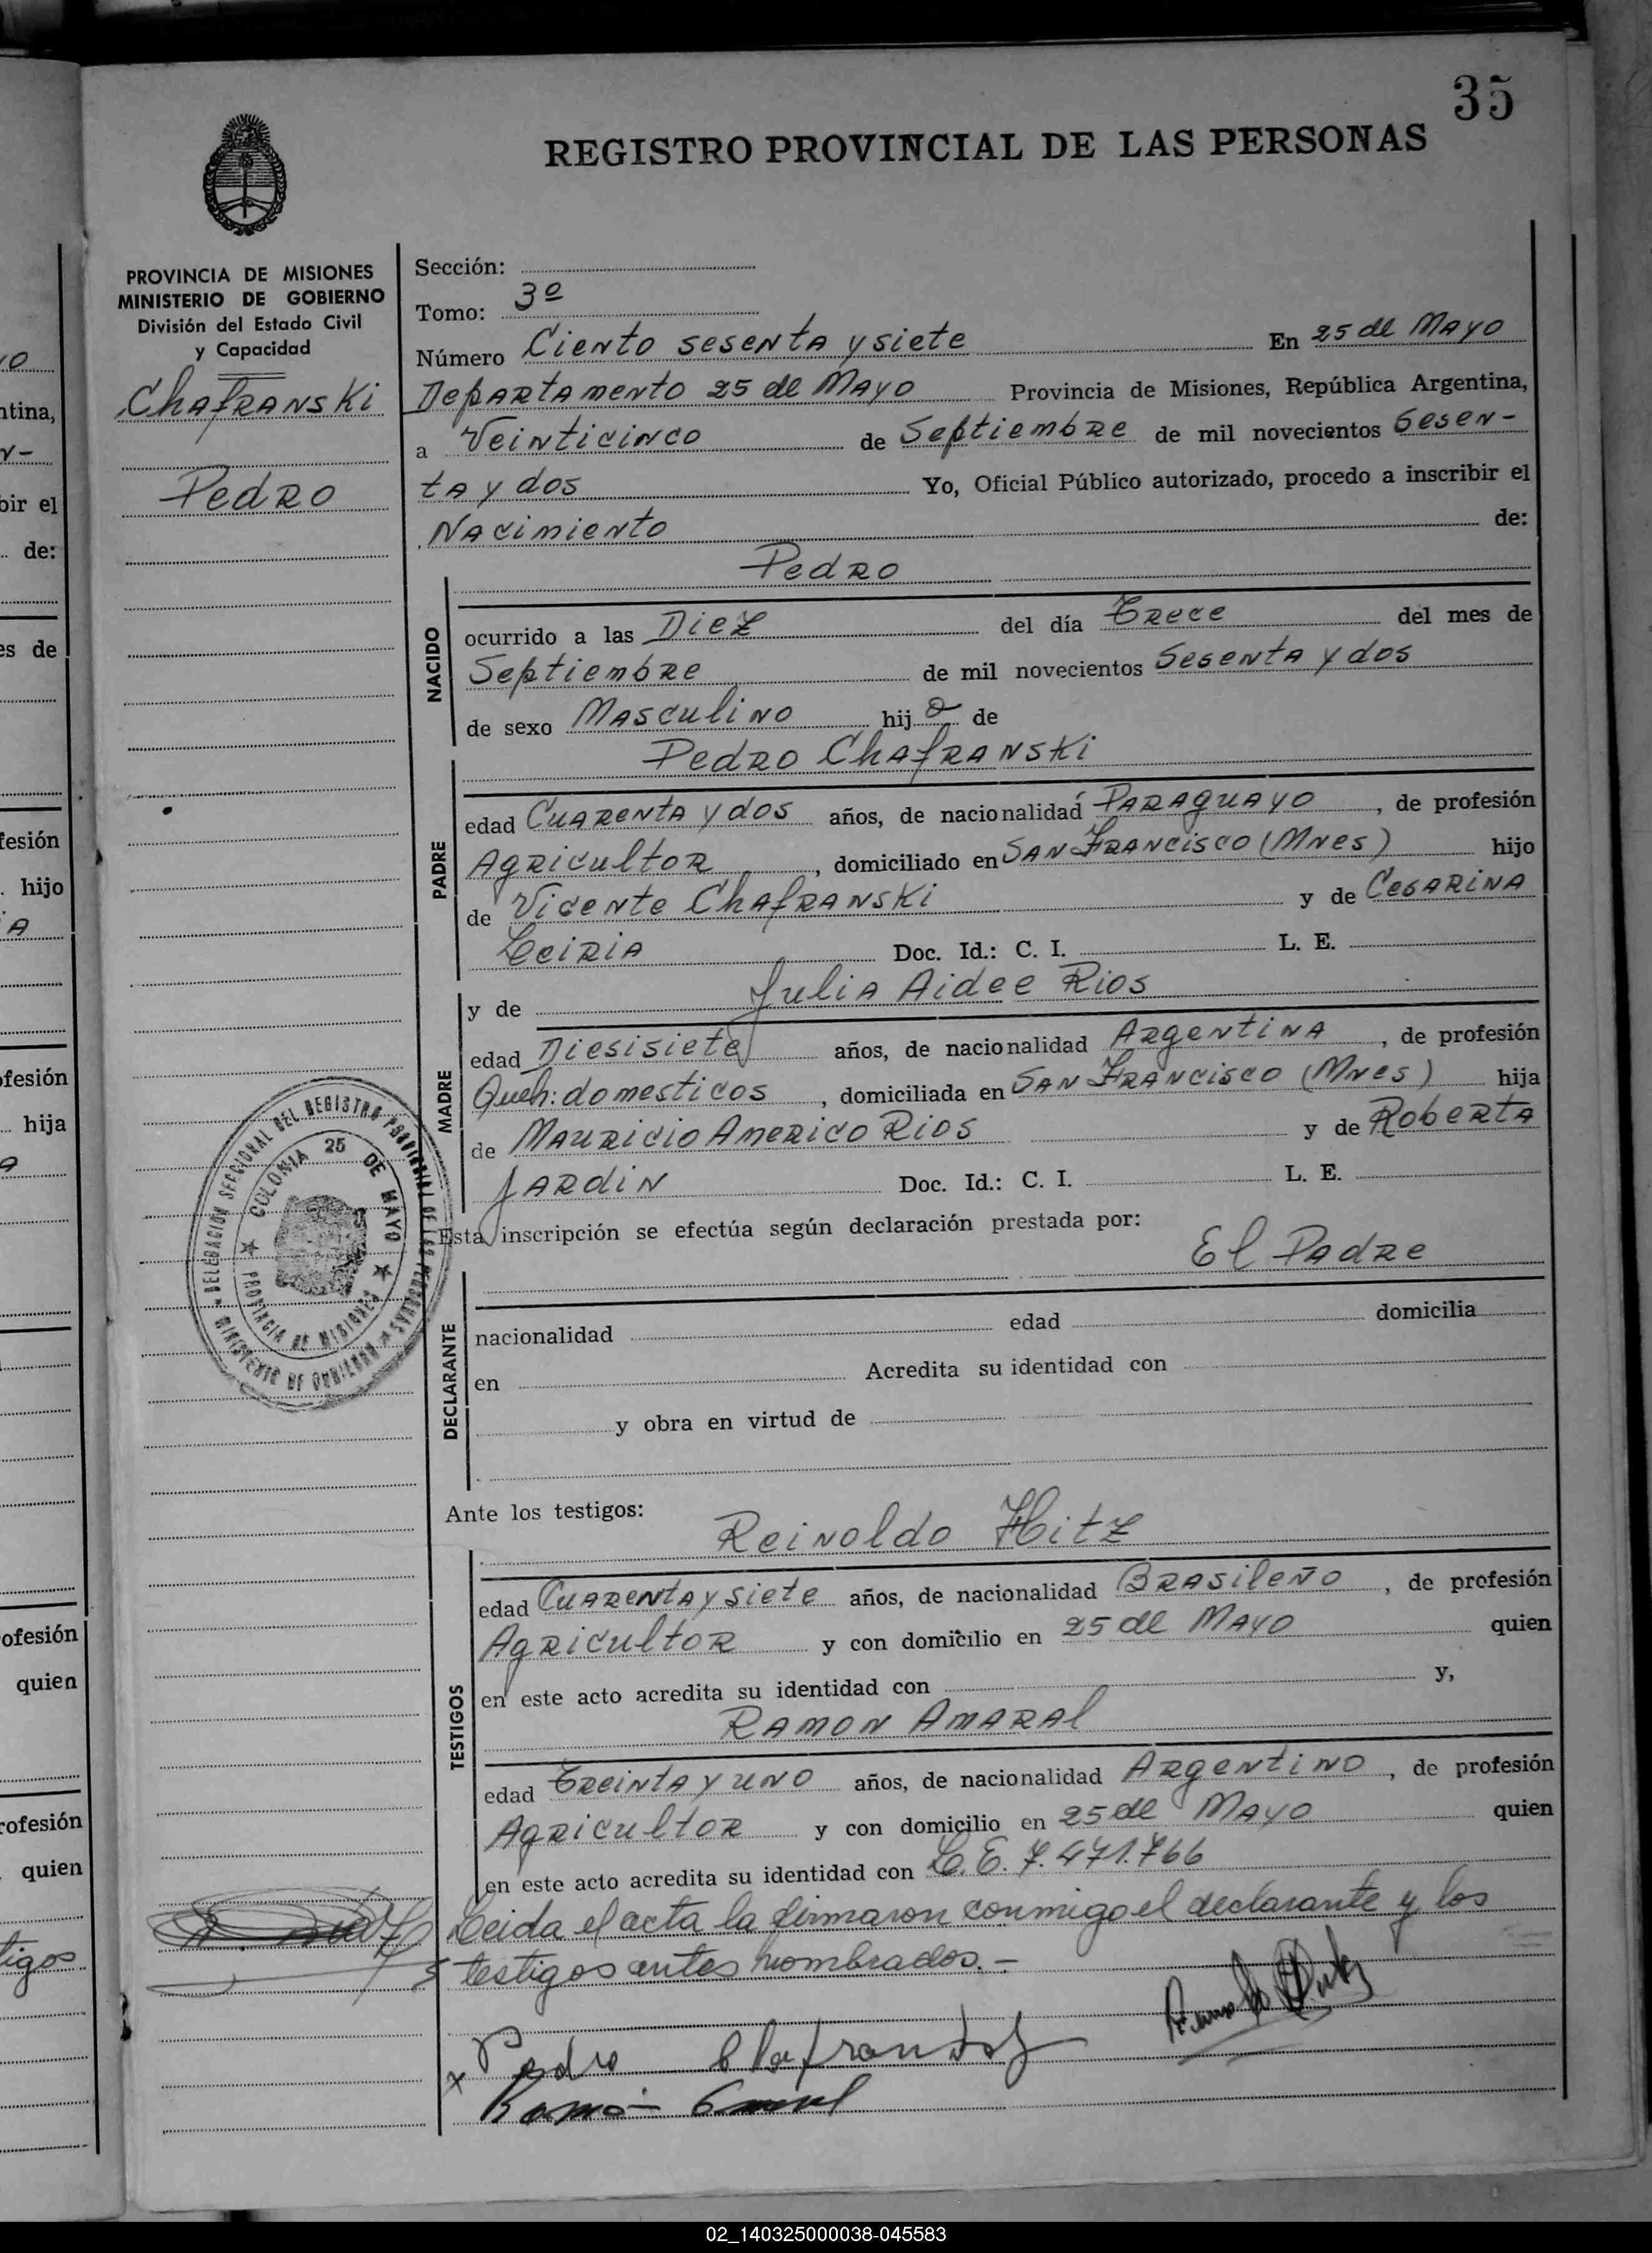 35
REGISTRO PROVINCIAL DE LAS PERSONAS
PROVINCIA DE MISIONES
MINISTERIO DE GOBIERNO
División del Estado Civil
y Capacidad
Chafranski
Pedro
Sección:
Tomo: 3º
Número Ciento sesenta y siete En 25 de Mayo
Departamento 25 de Mayo Provincia de Misiones, República Argentina,
a Veinticinco de Septiembre de mil novecientos Sesen-
ta y dos Yo, Oficial Público autorizado, procedo a inscribir el
Nacimiento de:
Pedro
NACIDO
ocurrido a las Diez del día Trece del mes de
Septiembre de mil novecientos Sesenta y dos
de sexo Masculino hij o de
Pedro Chafranski
PADRE
edad Cuarenta y dos años, de nacionalidad Paraguayo, de profesión
Agricultor, domiciliado en San Francisco (Mnes) hijo
de Vicente Chafranski y de Cesarina
Leiria Doc. Id.: C. I. L. E.
y de Julia Aidee Rios
MADRE
edad Diesisiete años, de nacionalidad Argentina, de profesión
Queh: domesticos, domiciliada en San Francisco (Mnes) hija
de Mauricio Americo Rios y de Roberta
Jardin Doc. Id.: C. I. L. E.
Esta inscripción se efectúa según declaración prestada por:
El Padre
DECLARANTE
nacionalidad edad domicilia
en Acredita su identidad con
y obra en virtud de
Ante los testigos:
Reinoldo Hitz
TESTIGOS
edad Cuarenta y siete años, de nacionalidad Brasileño, de profesión
Agricultor y con domicilio en 25 de Mayo quien
en este acto acredita su identidad con y,
Ramon Amaral
edad Treinta y uno años, de nacionalidad Argentino, de profesión
Agricultor y con domicilio en 25 de Mayo quien
en este acto acredita su identidad con L.E. 7.471.766
Leida el acta la firmaron conmigo el declarante y los
testigos antes nombrados.-
Pedro
DELEGACIÓN SECCIONAL DEL REGISTRO PROVINCIAL DE LAS PERSONAS
MINISTERIO DE GOBIERNO
COLONIA 25 DE MAYO
PROVINCIA DE MISIONES
02_140325000038-045583